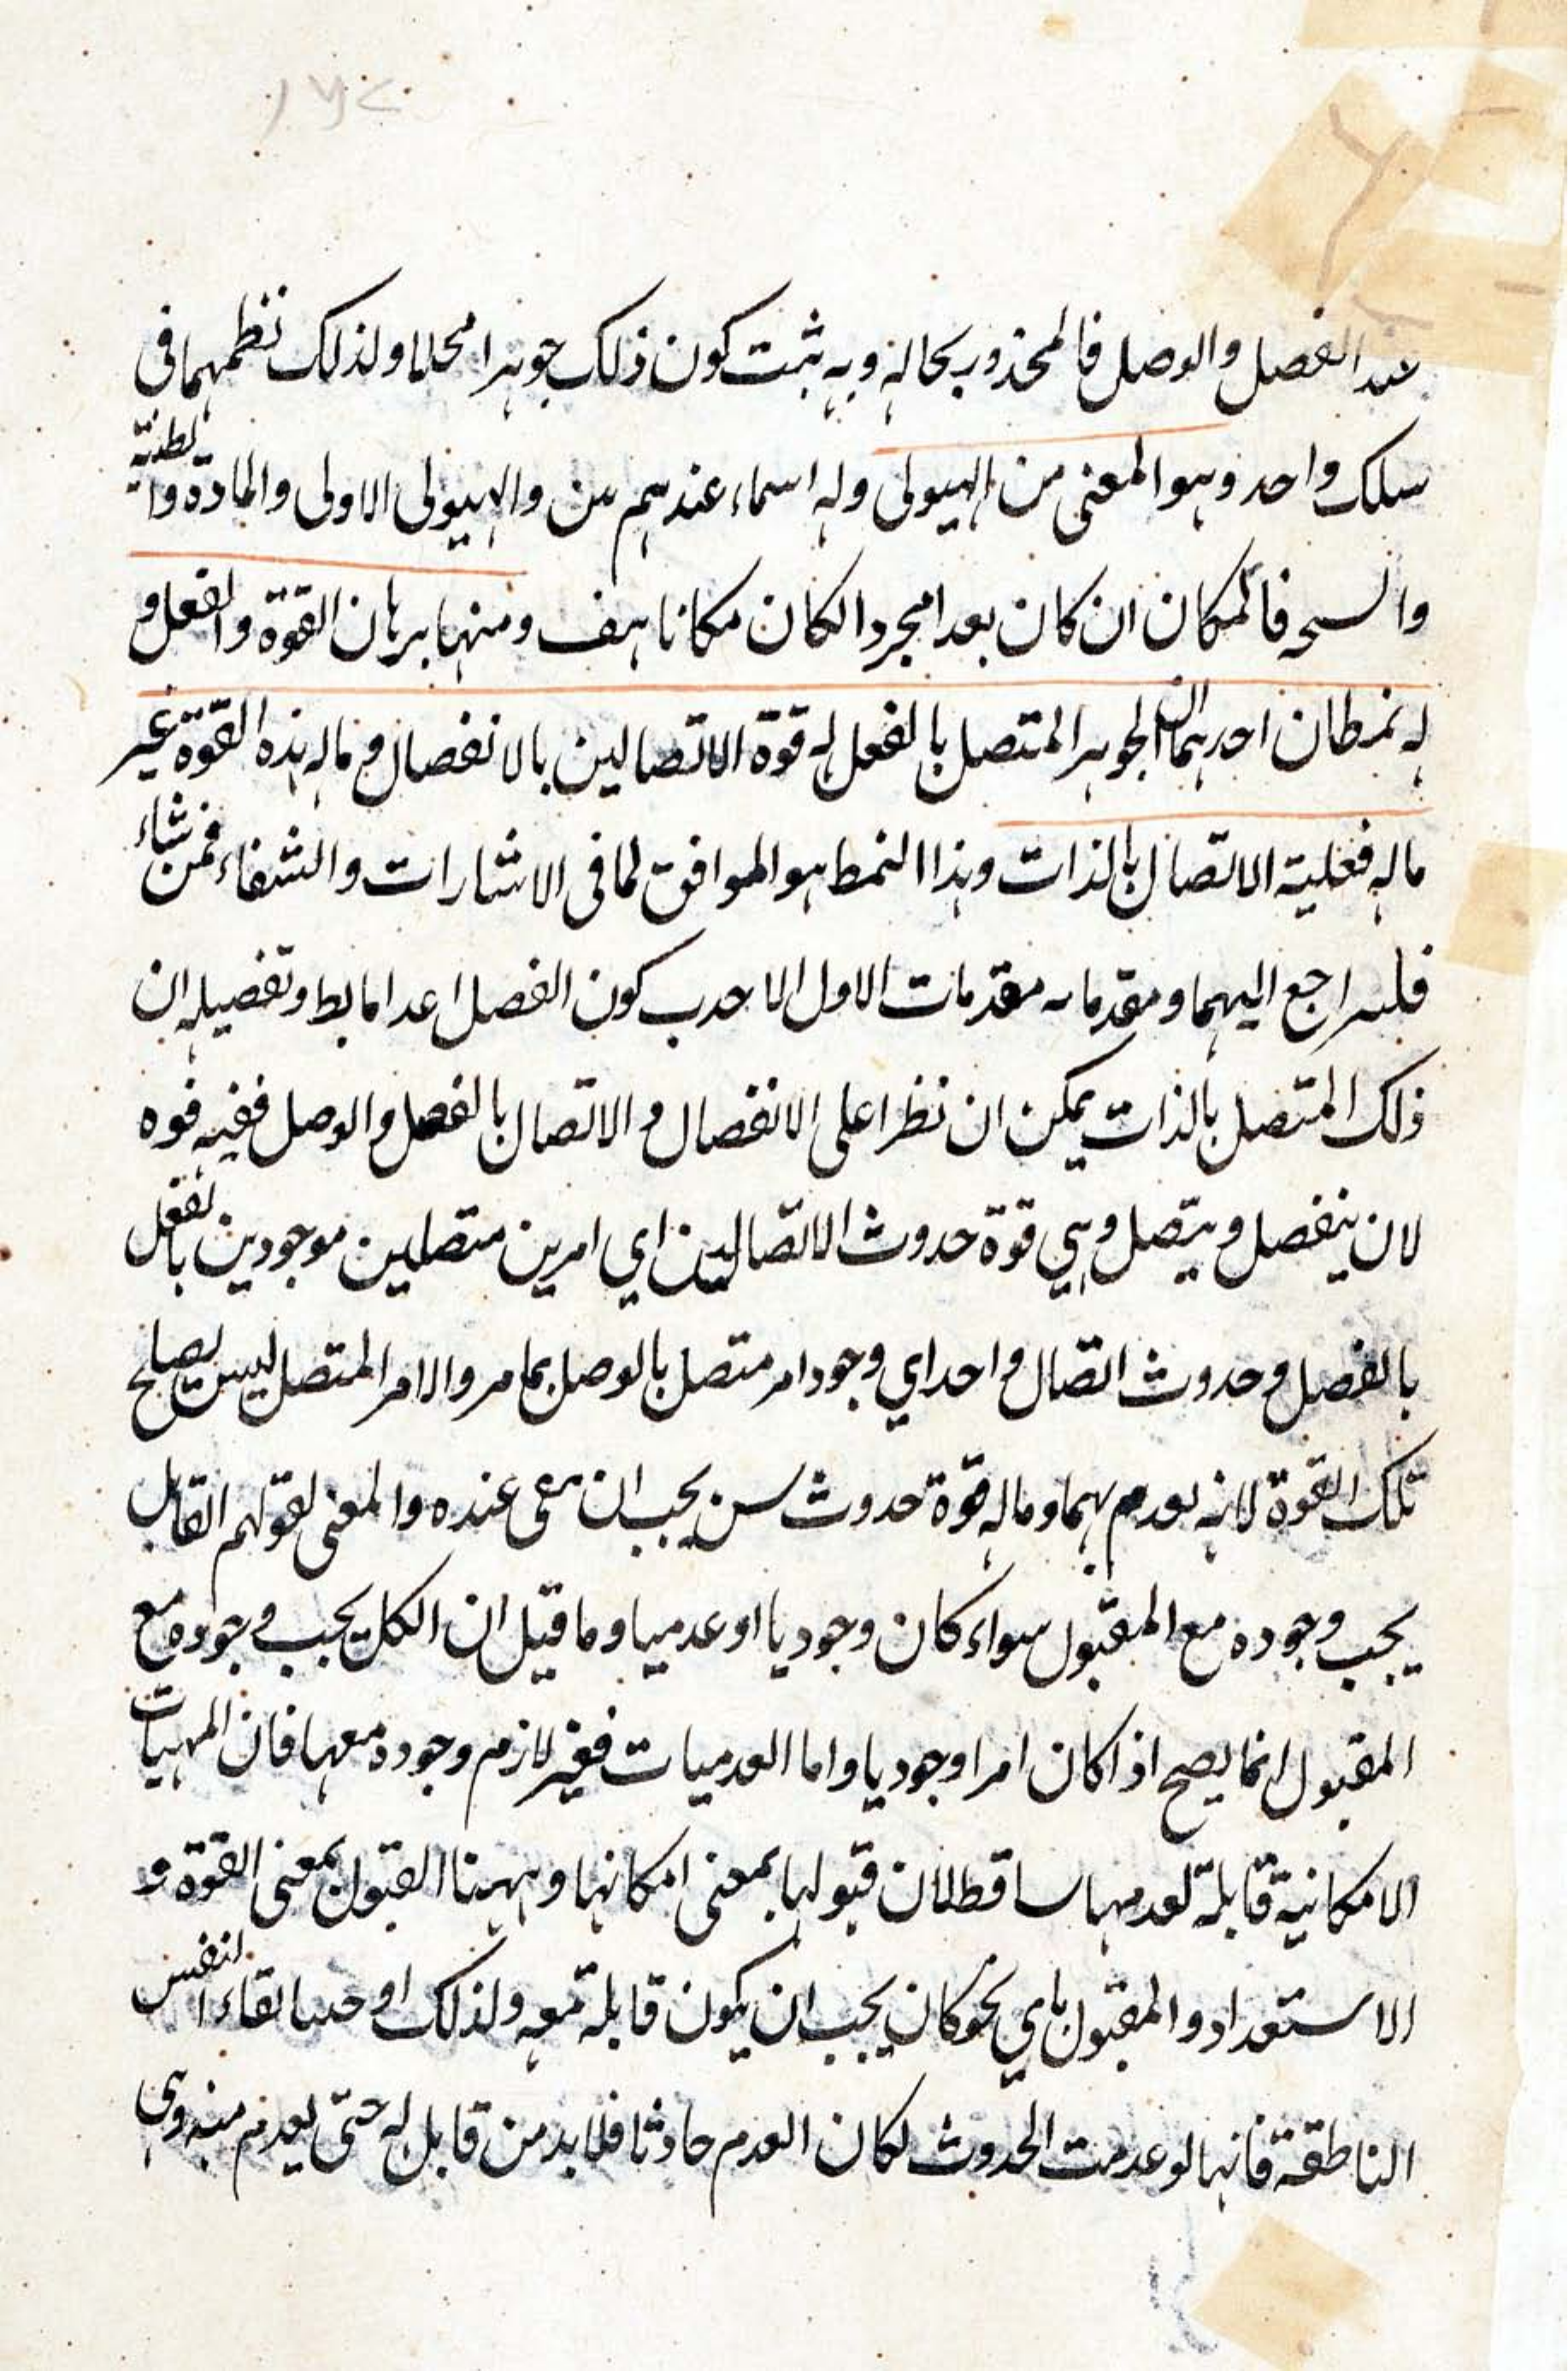 عند الفصل والوصل فالمحذور بحاله وبه يثبت كون ذلك جوهرا محلا ولذلك نظمهما فى
سلك واحد وهو المعنى من الهيولى وله اسماء عندهم والهيولى الاولى والمادة والطينة
فالمكان ان كان بعدا مجردا لكان مكانا هف ومنها برهان القوة والفعل و
له نمطان احدهما ان الجوهر المتصل بالفعل له قوة الاتصالين بالانفصال و ماله هذه القوة غير
ماله فعلية الاتصال بالذات وهذا النمط هو الموافق لما فى الاشارات والشفاء فمن شاء
فليراجع اليهما ومقدماته مقدمات الاول الا حدب كون الفصل اعداما بط وتفصيله ان
ذلك المتصل بالذات يمكن ان نظرا على الانفصال و الاتصال بالفصل والوصل ففيه قوه
لان ينفصل و يتصل وهي قوة حدوث الاتصالين اي امرين متصلين موجودين بالفعل
بالفصل و حدوث اتصال واحد اي وجود امر متصل بالوصل بما مر والامر المتصل ليس يصلح
تلك القوة لانه يعدم بهما وماله قوة حدوث يجب ان يبقى عنده والمعنى لقولهم القابل
يجب وجوده مع المقبول سواء كان وجوديا او عدميا وما قيل ان الكل يجب وجوده مع
المقبول انما يصح اذا كان امرا وجوديا واما العدميات فغير لازم وجوده معها فان المهيات
الامكانية قابلة لعدمها ساقط لان قبولها بمعنى امكانها وههنا القبول بمعنى القوة و
الاستعداد والمقبول باي نحو كان يجب ان يكون قابلة معه ولذلك اوجبنا بقاء النفس
الناطقة فانها لو عدمت الحدوث لكان العدم حادثا فلا بد من قابل له حتى يعدم منه وهى